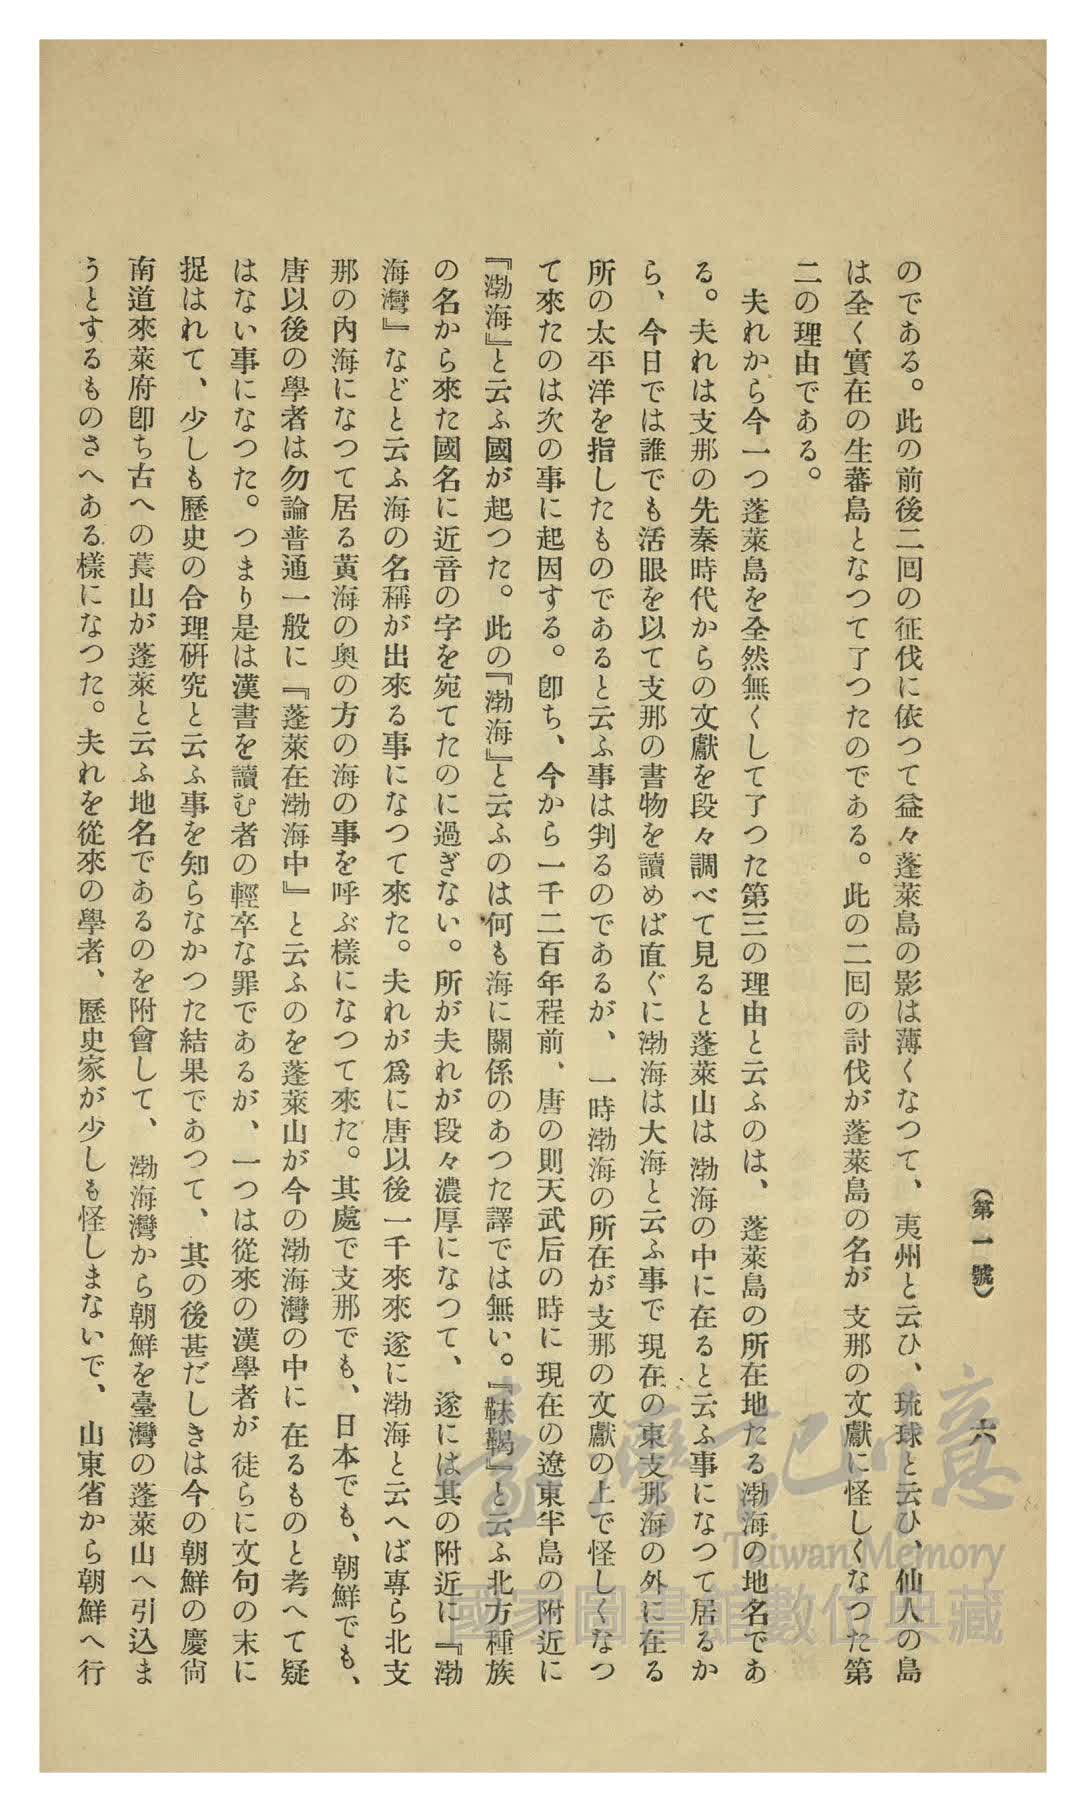 (第一號)
六
のである。此の前後二囘の征伐に依つて益々蓬萊島の影は薄くなつて、夷州と云ひ、琉球と云ひ、仙人の島
は全く實在の生蕃島となつて了つたのである。此の二囘の討伐が蓬萊島の名が支那の文獻に怪しくなつた第
二の理由である。
夫れから今一つ蓬萊島を全然無くして了つた第三の理由と云ふのは、蓬萊島の所在地たる渤海の地名であ
る。夫れは支那の先秦時代からの文獻を段々調べて見ると蓬萊山は渤海の中に在ると云ふ事になつて居るか
ら、今日では誰でも活眼を以て支那の書物を讀めば直ぐに渤海は大海と云ふ事で現在の東支那海の外に在る
所の太平洋を指したものであると云ふ事は判るのであるが、一時渤海の所在が支那の文獻の上で怪しくなつ
て來たのは次の事に起因する。卽ち、今から一千二百年程前、唐の則天武后の時に現在の遼東半島の附近に
『渤海』と云ふ國が起つた。此の『渤海』と云ふのは何も海に關係のあつた譯では無い。『靺鞨』と云ふ北方種族
の名から來た國名に近音の字を宛てたのに過ぎない。所が夫れが段々濃厚になつて、遂には其の附近に『渤
海灣』などと云ふ海の名稱が出來る事になつて來た。夫れが爲に唐以後一千來來遂に渤海と云へば專ら北支
那の內海になつて居る黃海の奧の方の海の事を呼ぶ樣になつて來た。其處で支那でも、日本でも、朝鮮でも、
唐以後の學者は勿論普通一般に『蓬萊在渤海中』と云ふのを蓬萊山が今の渤海灣の中に在るものと考へて疑
はない事になつた。つまり是は漢書を讀む者の輕卒な罪であるが、一つは從來の漢學者が徒らに文句の末に
捉はれて、少しも歷史の合理硏究と云ふ事を知らなかつた結果であつて、其の後甚だしきは今の朝鮮の慶尙
南道來萊府卽ち古への萇山が蓬萊と云ふ地名であるのを附會して、渤海灣から朝鮮を臺灣の蓬萊山へ引込ま
うとするものさへある樣になつた。夫れを從來の學者、歷史家が少しも怪しまないで、山東省から朝鮮へ行
臺灣記憶
Taiwan Memory
國家圖書館數位典藏